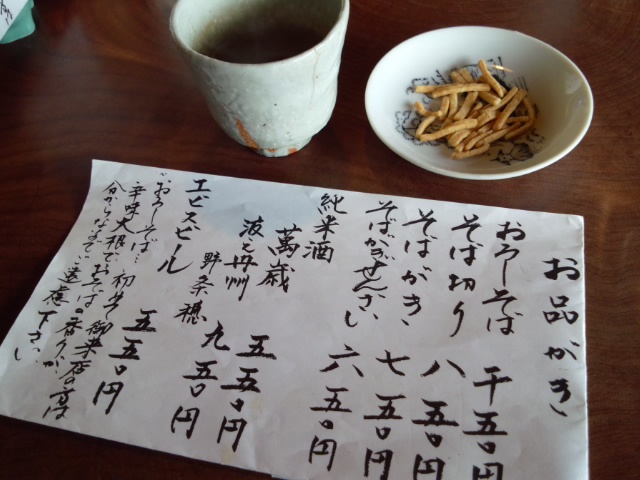 お品がき
おろしそば 千五〇円
そば切り 八五〇円
そばがき 七五〇円
そばがきぜんざい 六五〇円
純米酒
萬歳 五五〇円
丹州 野条穂 九五〇円
エビスビール 五五〇円
おろしそば… 初めて御来店の方は
辛味大根でおそばの香りが
分からなるので ご遠慮下さい